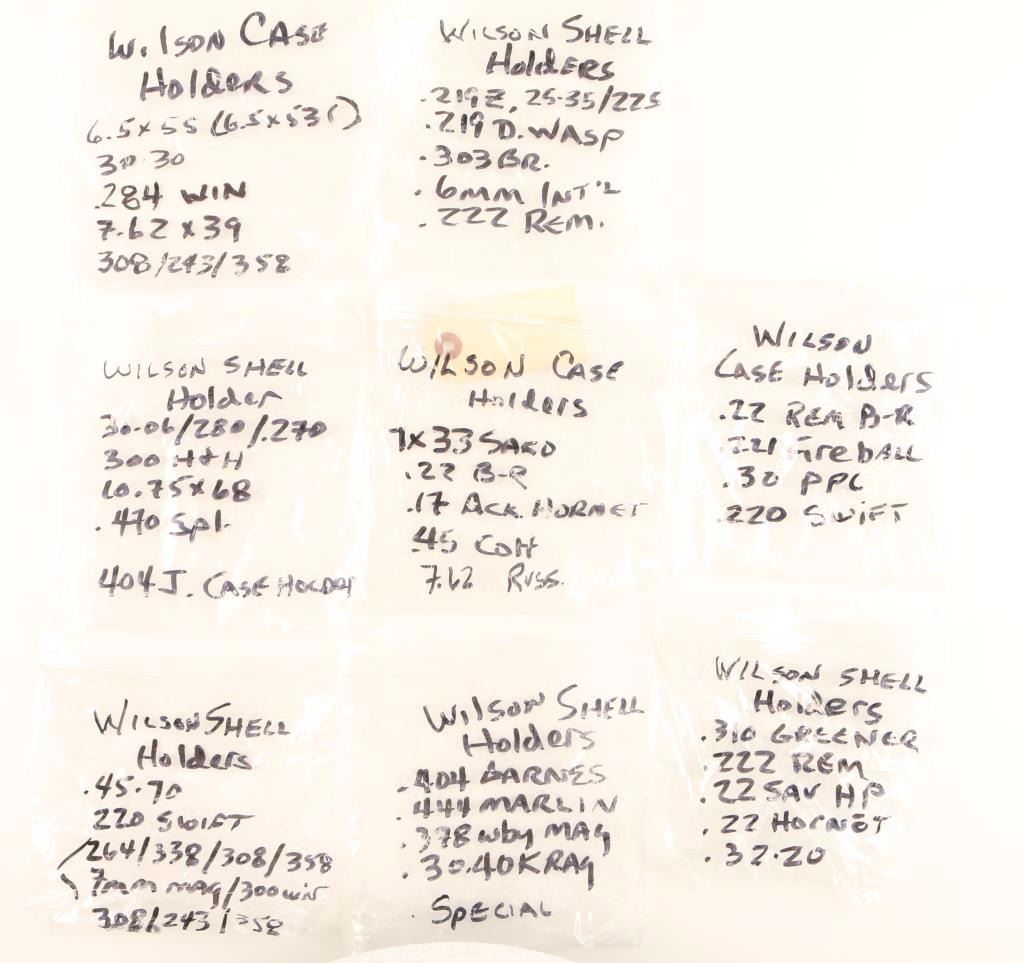 Wilson Case
Holders
6.5x55 (6.5x53
30-30
.284 WIN
7.62 x 39
308/243/358
Wilson Shell
Holders
.219Z, 25-35/225
.219 D. WASP
.303 BR.
.6mm INT'L
.222 REM.
WILSON SHELL
Holder
30-06/280/.270
300 H+H
10.75x68
.470 Spl.
404 J. CASE HOLDER
WILSON CASE
Holders
7x33 SAKO
.22 B-R
.17 ACK. HORNET
.45 Colt
7.62 RUSS.
Wilson
Case Holders
.22 REM B-R
.221 Fireball
.30 PPC
.220 SWIFT
Wilson Shell
Holders
.45-70
220 SWIFT
264/338/308/358
7mm mag/300 win
308/243/358
Wilson Shell
Holders
.404 BARNES
.444 MARLIN
.378 Wby MAG
.30-40 KRAG
. SPECIAL
WILSON SHELL
Holders
.310 GREENER
.222 REM
.22 SAV HP
.22 HORNET
.32-20